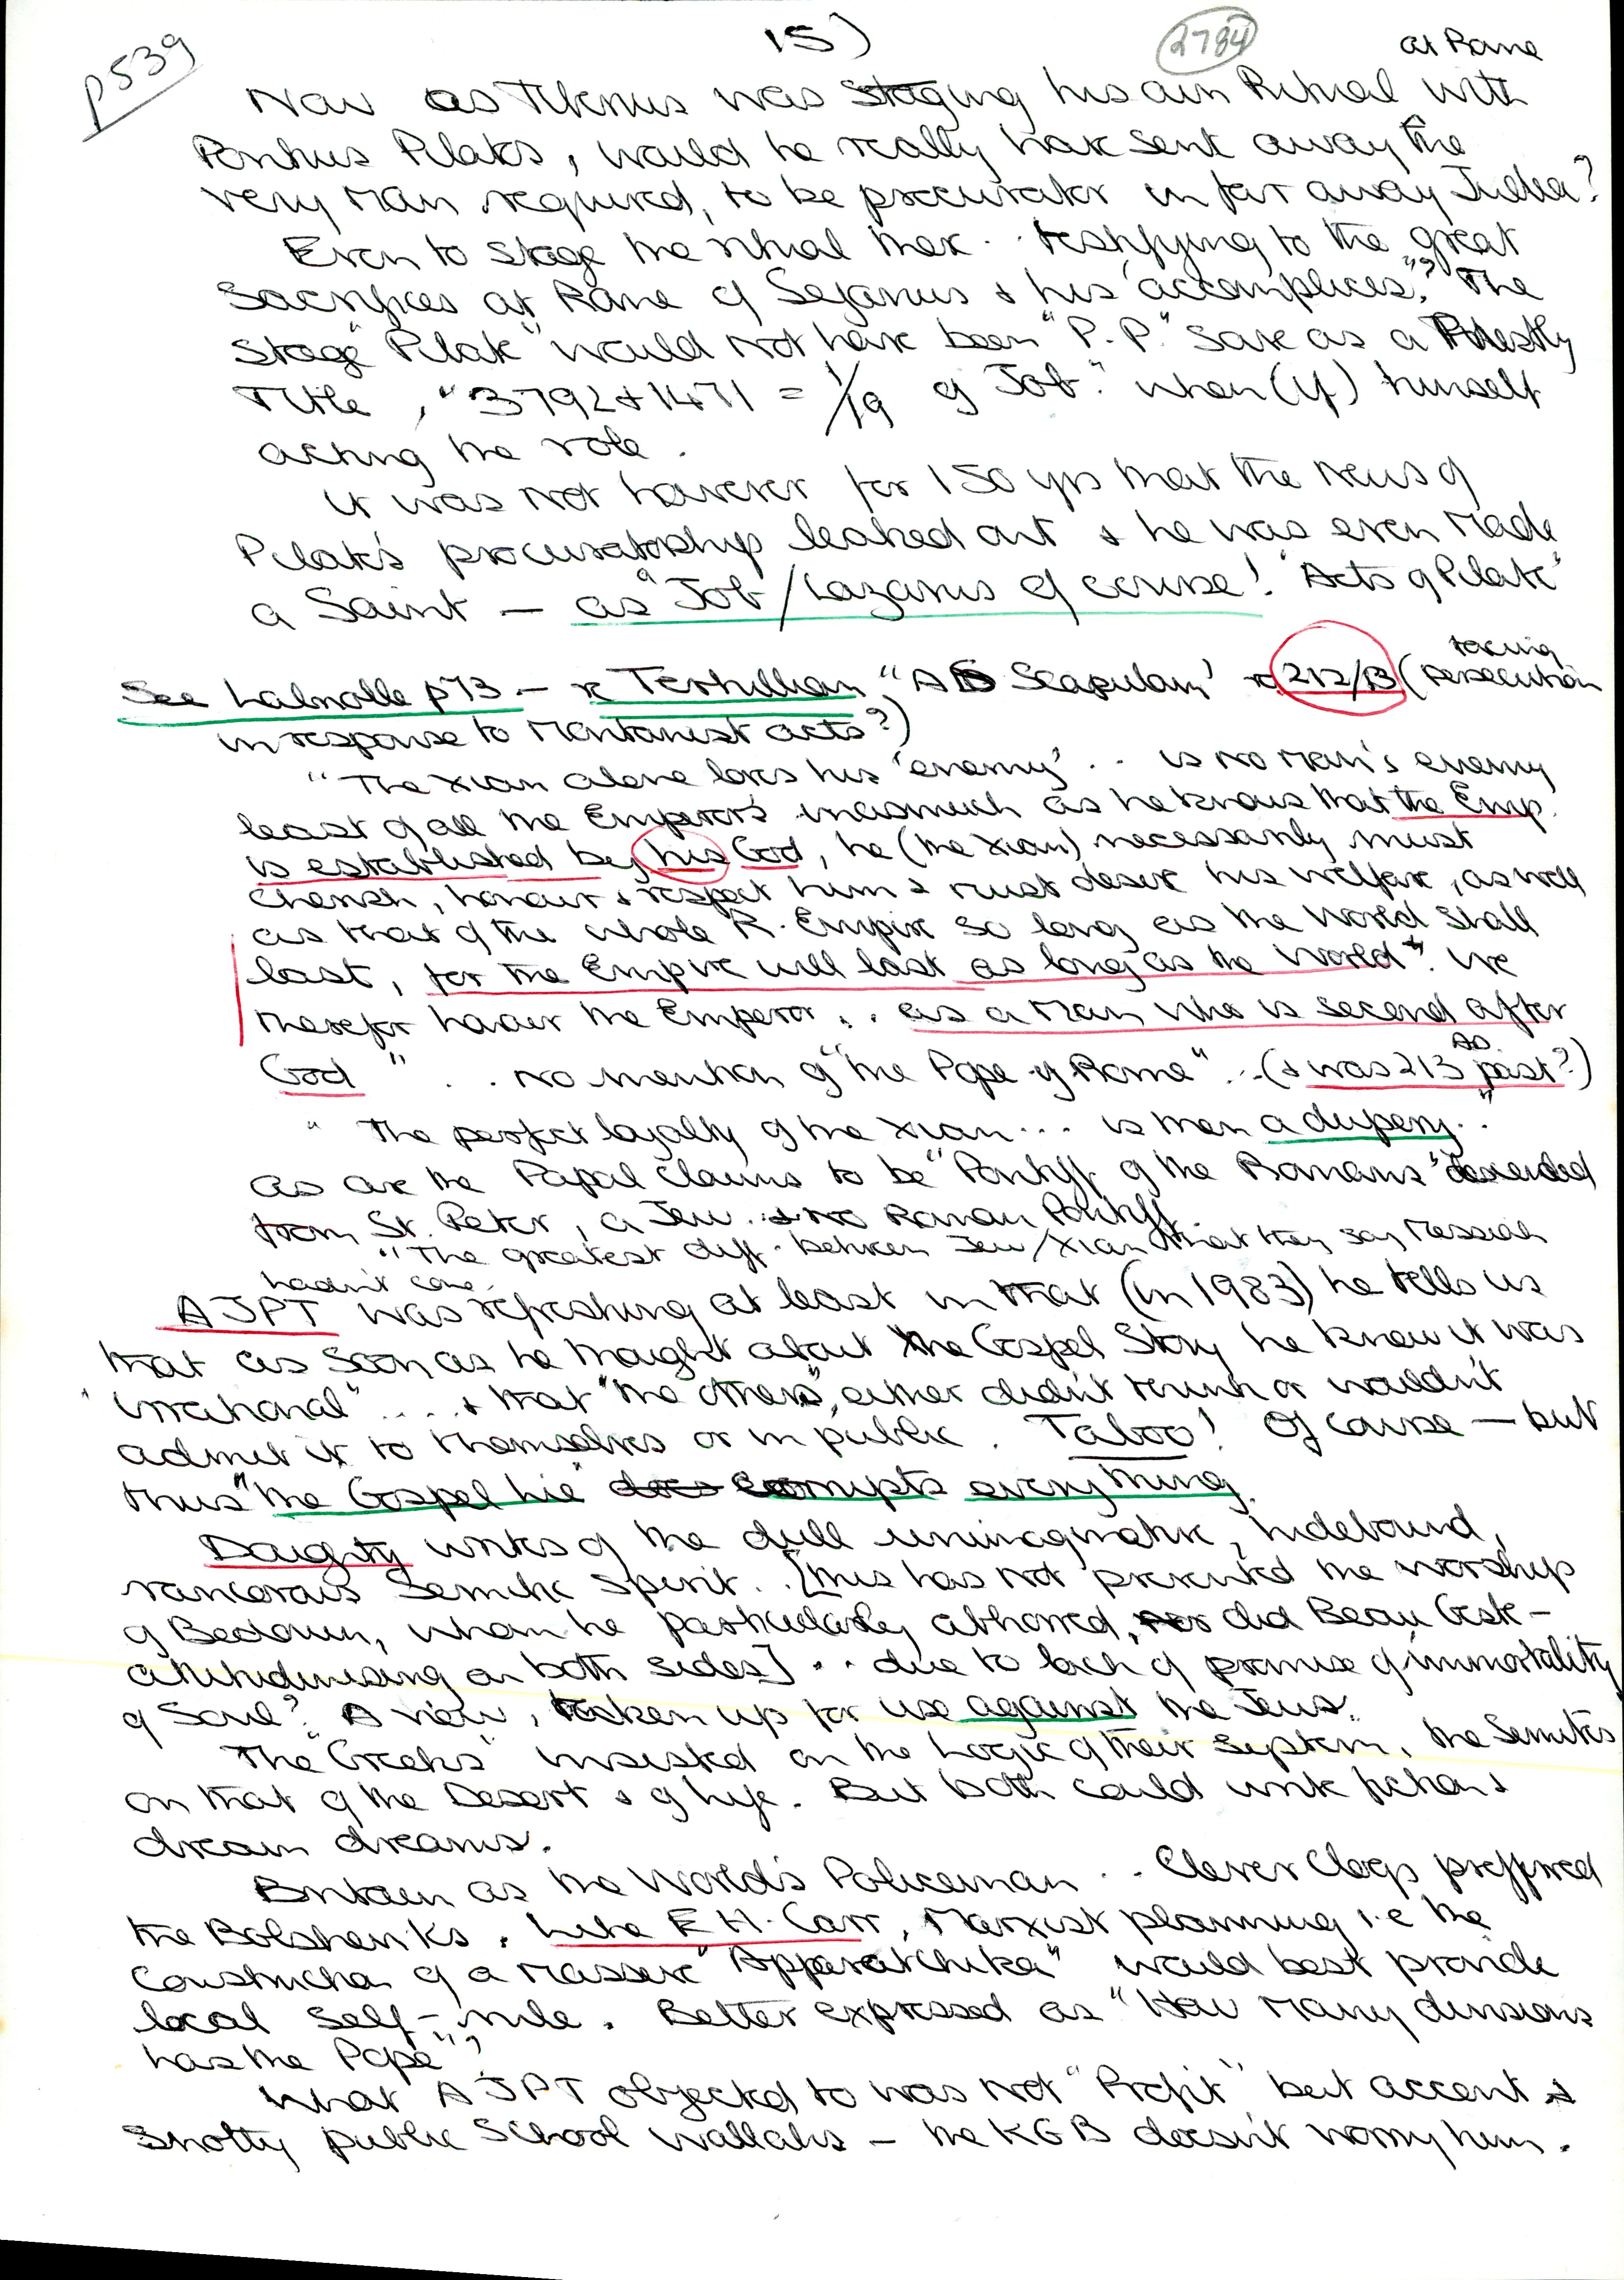 15)
2784
p539
at Rome
Now as Tiberius was staging his own Ritual with
Pontius Pilate, would he really have sent away the
very man required, to be procurator in far away Judea?
Even to stage the ritual there .. testifying to the great
Sacrifices at Rome of Sejanus & his "accomplices"? The
Stage "Pilate" would not have been "P.P." save as a Priestly
Title, "3792 & 1471 = 1/19 of Job." when (if) himself
acting the role.
It was not however for 150 yrs that the news of
Pilate's procuratorship leaked out & he was even made
a Saint — as "Job/Lazarus of course! "Acts of Pilate"
taking
See Labriolle p73 - re Tertullian, "AD Scapulam' re 212/13 (persecution
in response to Montanist acts?)
"The Xian alone loves his 'enemy' .. is no man's enemy
least of all the Emperor's inasmuch as he knows that the Emp.
is established by his God, he (the Xian) necessarily must
cherish, honour & respect him & must desire his welfare, as well
as that of the whole R. Empire so long as the World shall
last, for the Empire will last as long as the World". We
therefor honour the Emperor .. as a man who is second after
God" .. no mention of "the Pope of Rome" .. (& was 213 AD past?)
"The perfect loyalty of the Xian ... is then a dupery.."
as are the Papal claims to be "Pontiff of the Romans" descended
from St. Peter, a Jew .. & no Roman Pontiff.
"The greatest diff. between Jew/Xian that they say Messiah
hadn't come.
AJPT was refreshing at least in that (in 1983) he tells us
that as soon as he thought about the Gospel Story he knew it was
"irrational" .... & that "the others", either didn't think or wouldn't
admit it to themselves or in public. Taboo! Of course — but
thus "the Gospel lie" does corrupts everything.
Doughty writes of the dull unimaginative, hidebound,
rancorous Semitic spirit. .[this has not prevented the worship
of Bedouin, whom he particularly abhorred, nor did Beau Geste -
attitudinising on both sides] .. due to lack of promise of immortality
of Soul? A view, taken up for use against the Jews.
The "Greeks" insisted on the Logic of their System, the Semites
on that of the Desert & of life. But both could write fiction &
dream dreams.
Britain as the World's Policeman .. Clever Clogs preffered
the Bolsheviks. Like E H. Carr, Marxist planning i.e the
Construction of a massive "Apparatchika" would best provide
local self-rule. Better expressed as "How many divisions
has the Pope"?
What AJPT objected to was not "Profit" but accent &
Snotty public School wallahs — the KGB doesn't worry him.